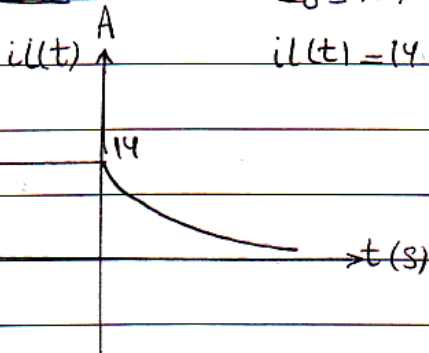 A
il(t)
il(t) = 14
14
t(s)